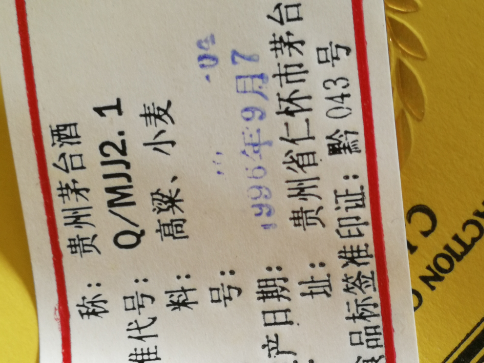 称：贵州茅台酒
准代号：Q/MJJ2.1
料：高粱、小麦
号：
产日期：1996年9月7
址：贵州省仁怀市茅台
食品标签准印证：黔043号
CTION